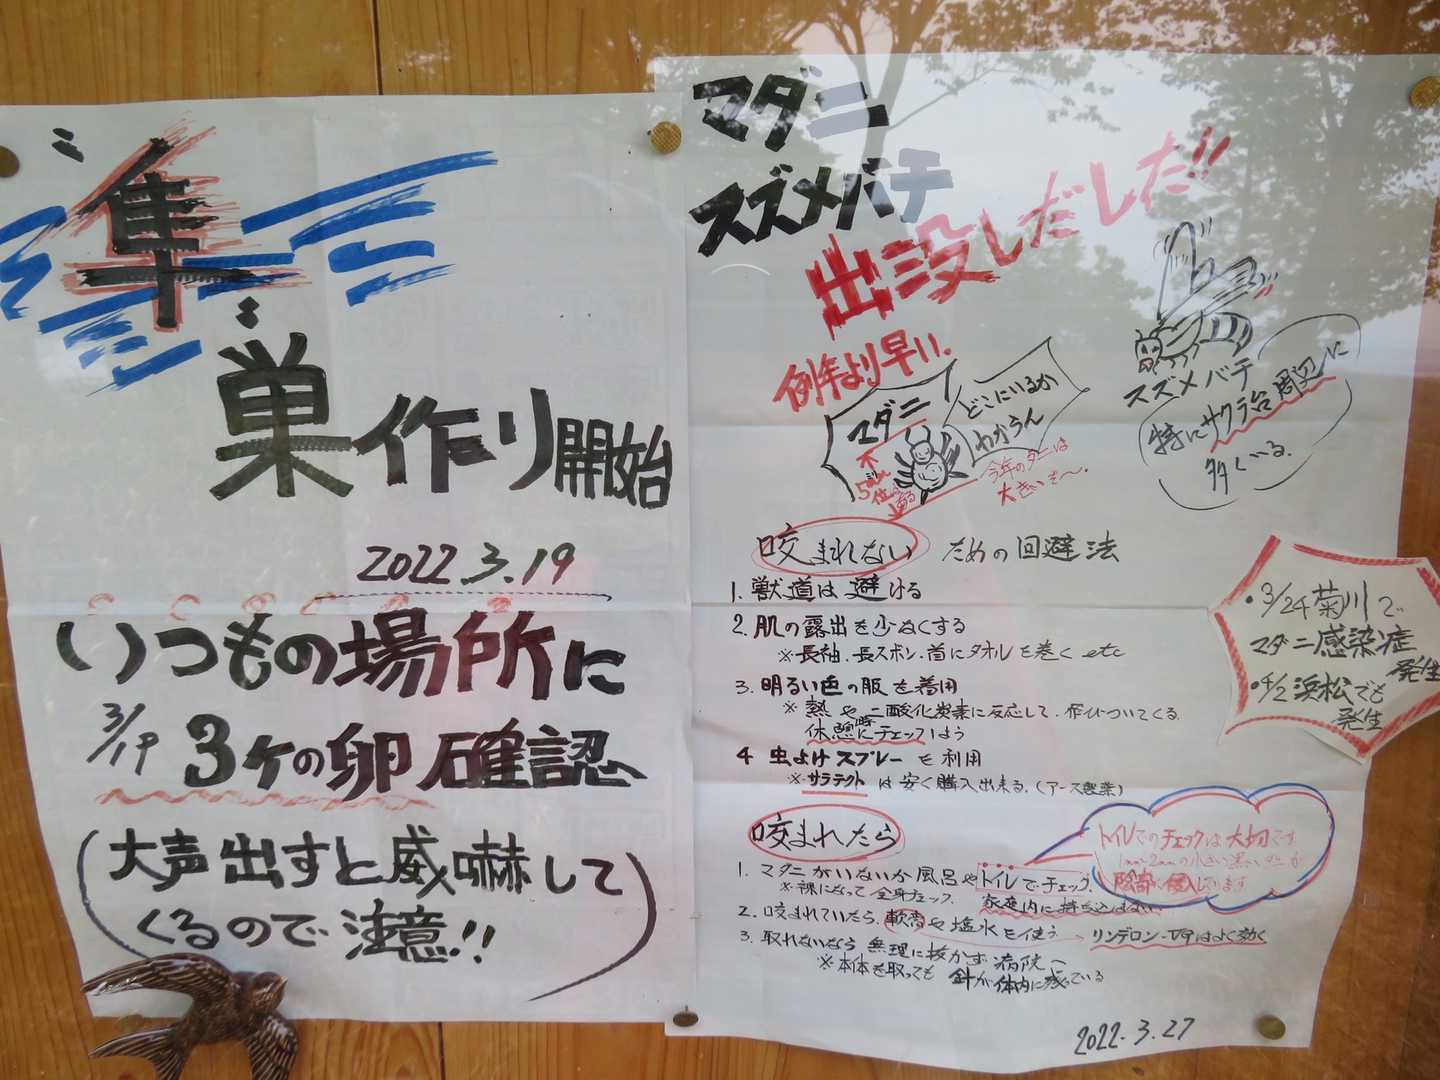 隼
巣作り開始
2022.3.19
いつもの場所に
3/19 3ケの卵確認
(大声出すと威嚇して
くるので注意!!)
マダニ
スズメバチ
出没しだした!!
例年より早い.
マダニ
どこにいるか
わからん
今年のダニは
大きいぞ〜.
スズメバチ
特にサクラ台周辺に
多くいる.
咬まれない ための回避法
1. 獣道は避ける
2. 肌の露出を少なくする
※長袖.長ズボン.首にタオルを巻くetc
3. 明るい色の服を着用
※熱や二酸化炭素に反応して.飛びついてくる.
休憩時にチェックしよう
4 虫よけスプレーを利用
※サラテクトは安く購入出来る.(アース製薬)
・3/24菊川で
マダニ感染症
発生
・4/2浜松でも
発生
咬まれたら
1. マダニがいないか風呂やトイレでチェック.
※裸になって全身チェック. 家庭内に持ち込まない.
トイレでのチェックは大切です
1mm~2mmの小さい黒いダニが
陰部に侵入しています
2. 咬まれていたら.軟膏や塩水を使う リンデロン-VGはよく効く
3. 取れないなら無理に抜かず病院へ
※本体を取っても針が体内に残っている
2022.3.27